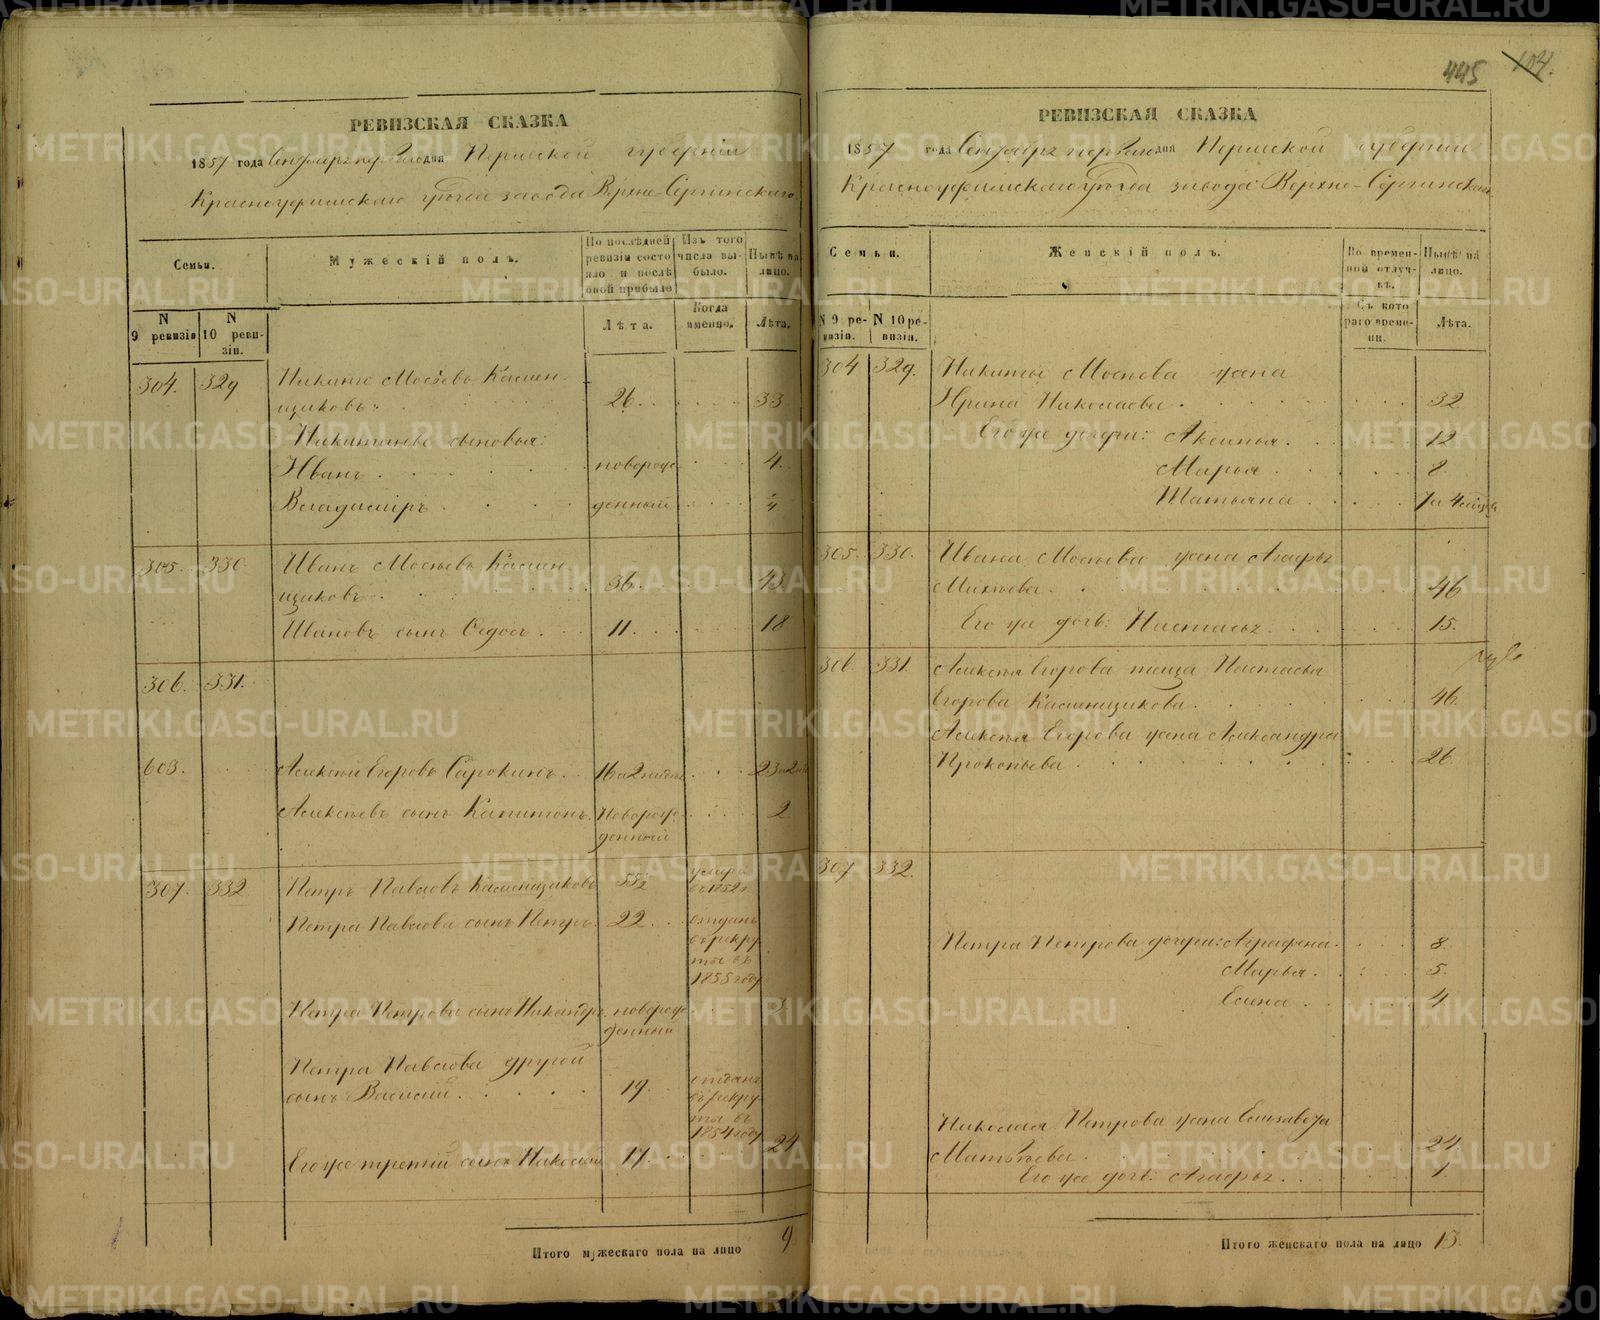 445 104.
РЕВИЗСКАЯ СКАЗКА
1857 года Сентября перваго дня Пермской губерніи
Красноуфимскаго уѣзда завода Верхне-Сергинскаго
Семьи.
Мужескій полъ.
По послѣдней ревизіи состояло и послѣ оной прибыло
Изъ того числа выбыло.
Нынѣ на лицо.
N 9 ревизіи
N 10 ревизіи.
Лѣта.
Когда именно.
Лѣта.
304. 329 Никита Мосѣевъ Камен-
щиковъ 26. 33
Никитины сыновья:
Иванъ новорож- 4.
Владиміръ денный
305. 330 Иванъ Мосѣевъ Камен-
щиковъ 36. 43.
Ивановъ сынъ Ѳедосъ 11. 18
306. 331.
603. Алексѣй Егоровъ Сорокинъ 16
Алексѣевъ сынъ Капитонъ Новорож- 2
денный
307. 332 Петръ Павловъ Каменщиковъ умеръ
въ 1852 г.
Петра Павлова сынъ Петръ 22. отданъ
въ рекру-
ты въ
1855 году
Петра Петрова сынъ Никандръ новорож-
денный
Петра Павлова другой
сынъ Василій 19. отданъ
въ рекру-
ты въ
1854 году
Его же третій сынъ Николай 17. 24
Итого мужескаго пола на лицо 9
РЕВИЗСКАЯ СКАЗКА
1857 года Сентября перваго дня Пермской губерніи
Красноуфимскаго уѣзда завода Верхне-Сергинскаго
Семьи.
Женскій полъ.
Во временной отлучкѣ.
Нынѣ на лицо.
N 9 ревизіи.
N 10 ревизіи.
Съ котораго времени.
Лѣта.
304 329. Никиты Мосѣева жена
Ирина Николаева 32
Его же дочери: Аксинья 12
Марья 8
Татьяна
305. 330. Ивана Мосѣева жена Агафья
Михѣева 46
Его же дочь: Настасья 15.
306 331. Алексѣя Егорова теща Настасья
Егорова Каменщикова 46.
Алексѣя Егорова жена Александра
Прокопьева 26
307 332.
Петра Петрова дочери: Аграфена 8.
Марья 5.
Елена 4
Николая Петрова жена Елизавета
Матвѣева 24
Его же дочь Агафья 1.
Итого женскаго пола на лицо 13.
METRIKI.GASO-URAL.RU